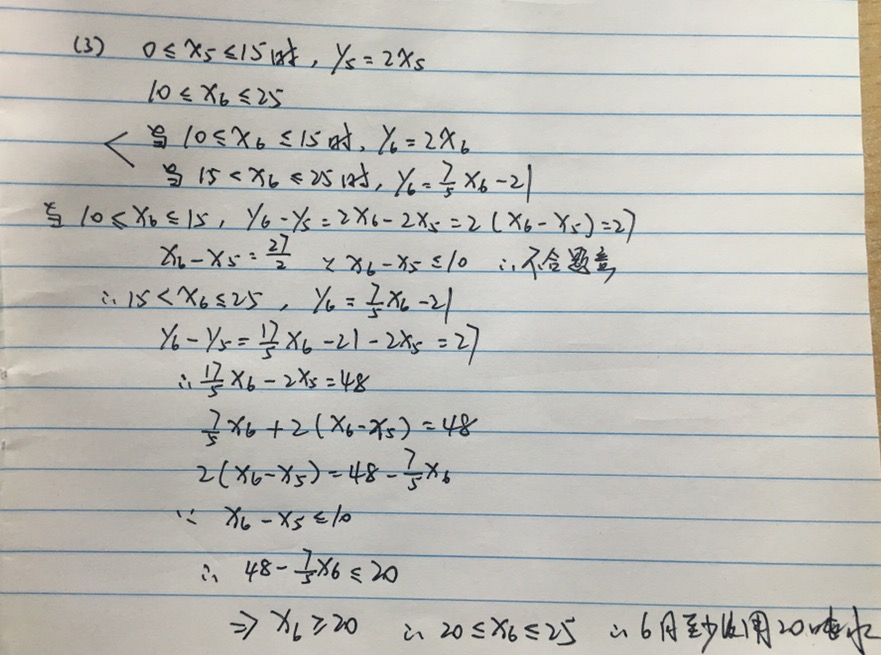 (3) 0≤x₅≤15时, y₅=2x₅
10≤x₆≤25
当10≤x₆≤15时, y₆=2x₆
当15<x₆≤25时, y₆=7/5x₆-21
当10≤x₆≤15, y₆-y₅=2x₆-2x₅=2(x₆-x₅)=27
x₆-x₅=27/2 ∵x₆-x₅≤10 ∴不合题意
∴15<x₆≤25, y₆=7/5x₆-21
y₆-y₅=17/5x₆-21-2x₅=27
∴17/5x₆-2x₅=48
7/5x₆+2(x₆-x₅)=48
2(x₆-x₅)=48-7/5x₆
∵ x₆-x₅≤10
∴ 48-7/5x₆≤20
⇒ x₆≥20 ∴20≤x₆≤25 ∴6月至少使用20吨水